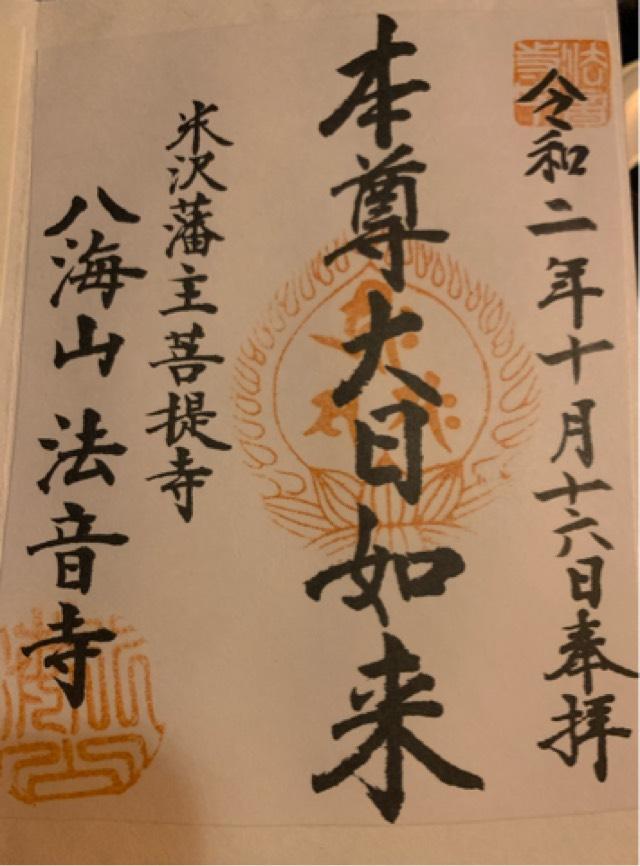 令和二年十月十六日奉拝
本尊大日如来
米沢藩主菩提寺
八海山 法音寺